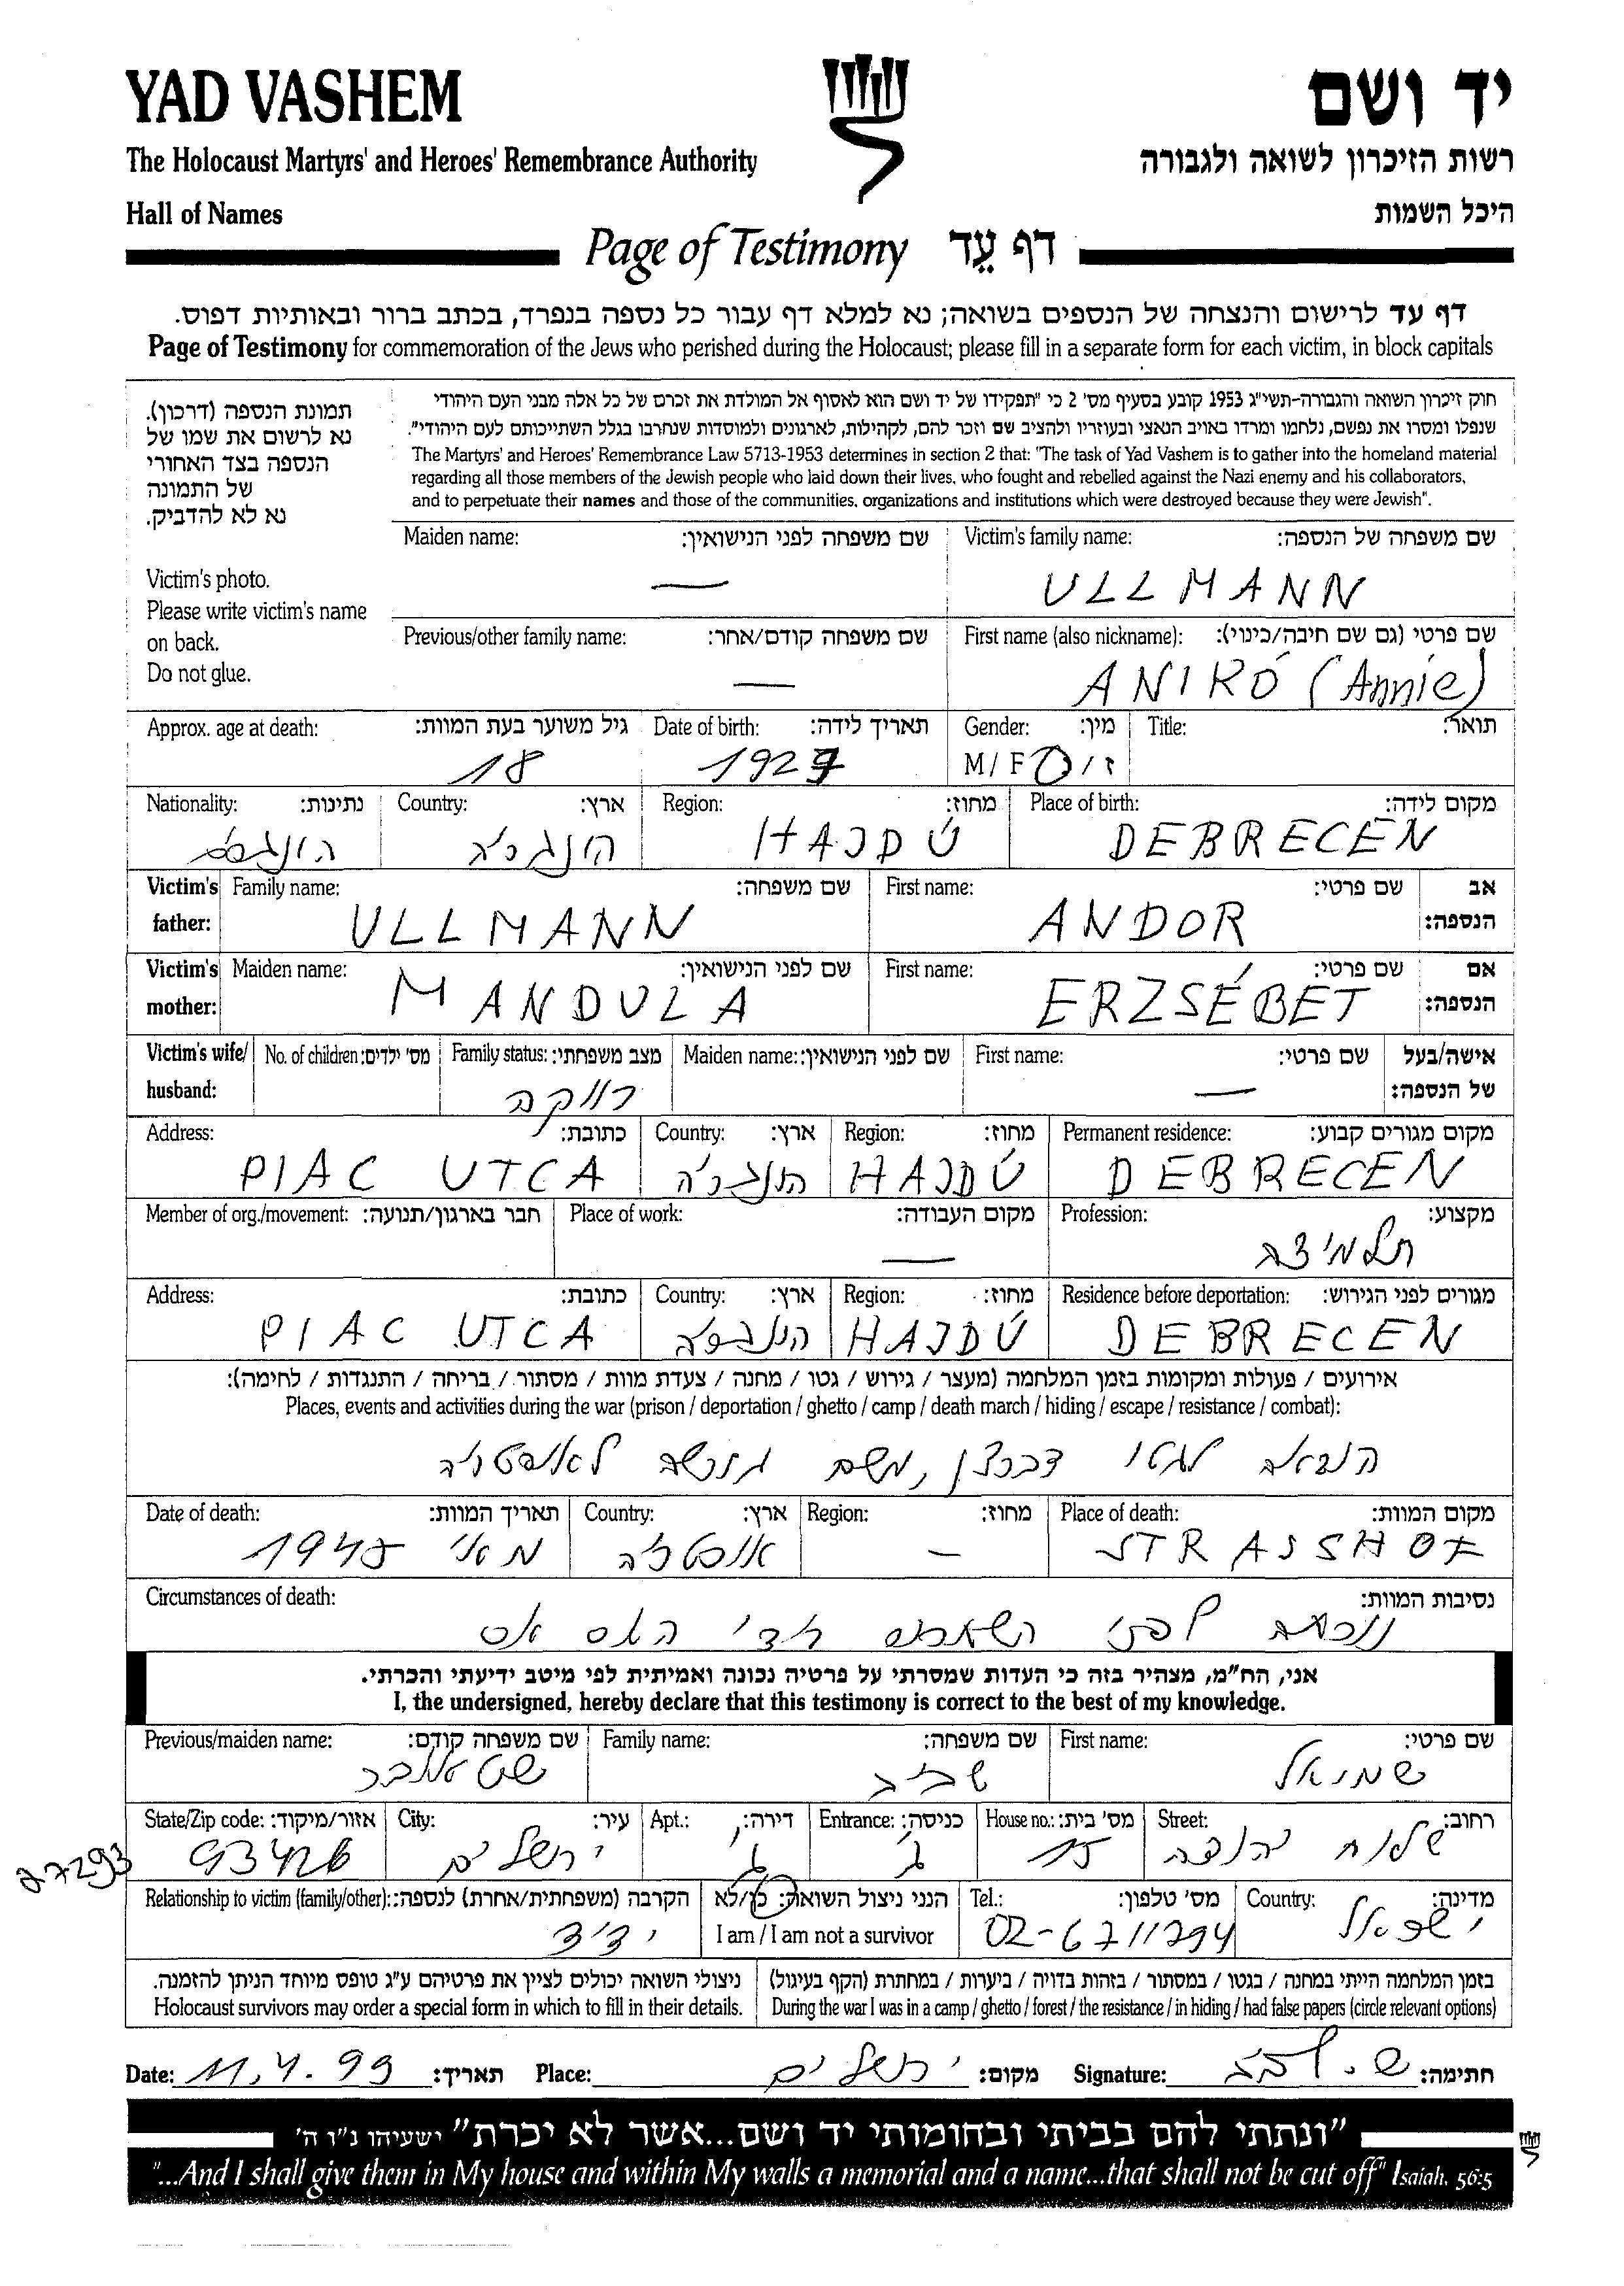 YAD VASHEM
יד ושם
The Holocaust Martyrs' and Heroes' Remembrance Authority
רשות הזיכרון לשואה ולגבורה
Hall of Names
היכל השמות
Page of Testimony דף עֵד
דף עד לרישום והנצחה של הנספים בשואה; נא למלא דף עבור כל נספה בנפרד, בכתב ברור ובאותיות דפוס.
Page of Testimony for commemoration of the Jews who perished during the Holocaust; please fill in a separate form for each victim, in block capitals
תמונת הנספה (דרכון).
נא לרשום את שמו של
הנספה בצד האחורי
של התמונה
נא לא להדביק.
Victim's photo.
Please write victim's name
on back.
Do not glue.
חוק זיכרון השואה והגבורה-תשי"ג 1953 קובע בסעיף מס' 2 כי "תפקידו של יד ושם הוא לאסוף אל המולדת את זכרם של כל אלה מבני העם היהודי
שנפלו ומסרו את נפשם, נלחמו ומרדו באויב הנאצי ובעוזריו ולהציב שם וזכר להם, לקהילות, לארגונים ולמוסדות שנחרבו בגלל השתייכותם לעם היהודי".
The Martyrs' and Heroes' Remembrance Law 5713-1953 determines in section 2 that: "The task of Yad Vashem is to gather into the homeland material
regarding all those members of the Jewish people who laid down their lives, who fought and rebelled against the Nazi enemy and his collaborators,
and to perpetuate their names and those of the communities, organizations and institutions which were destroyed because they were Jewish".
Maiden name: שם משפחה לפני הנישואין: Victim's family name: שם משפחה של הנספה:
— ULLMANN
Previous/other family name: שם משפחה קודם/אחר: First name (also nickname): שם פרטי (גם שם חיבה/כינוי):
— ANIKÓ (Annie)
Approx. age at death: גיל משוער בעת המוות: Date of birth: תאריך לידה: Gender: מין: Title: תואר:
18 1927 M / F ז /
Nationality: נתינות: Country: ארץ: Region: מחוז: Place of birth: מקום לידה:
הונגריה HAJDÚ DEBRECEN
Victim's father: Family name: שם משפחה: First name: שם פרטי: אב הנספה:
ULLMANN ANDOR
Victim's mother: Maiden name: שם לפני הנישואין: First name: שם פרטי: אם הנספה:
MANDULA ERZSÉBET
Victim's wife/ husband: No. of children: מס' ילדים: Family status: מצב משפחתי: Maiden name: שם לפני הנישואין: First name: שם פרטי: אישה/בעל של הנספה:
רווקה —
Address: כתובת: Country: ארץ: Region: מחוז: Permanent residence: מקום מגורים קבוע:
PIAC UTCA הונגריה HAJDÚ DEBRECEN
Member of org./movement: חבר בארגון/תנועה: Place of work: מקום העבודה: Profession: מקצוע:
— תלמידה
Address: כתובת: Country: ארץ: Region: מחוז: Residence before deportation: מגורים לפני הגירוש:
PIAC UTCA הונגריה HAJDÚ DEBRECEN
אירועים / פעולות ומקומות בזמן המלחמה (מעצר / גירוש / גטו / מחנה / צעדת מוות / מסתור / בריחה / התנגדות / לחימה):
Places, events and activities during the war (prison / deportation / ghetto / camp / death march / hiding / escape / resistance / combat):
הובאה לגטו דברצן, משם גורשה לאוסטריה
Date of death: תאריך המוות: Country: ארץ: Region: מחוז: Place of death: מקום המוות:
מאי 1945 אוסטריה — STRASSHOF
Circumstances of death: נסיבות המוות:
נורתה לפני השחרור בידי האס אס
אני, הח"מ, מצהיר בזה כי העדות שמסרתי על פרטיה נכונה ואמיתית לפי מיטב ידיעתי והכרתי.
I, the undersigned, hereby declare that this testimony is correct to the best of my knowledge.
Previous/maiden name: שם משפחה קודם: Family name: שם משפחה: First name: שם פרטי:
שמואל
State/Zip code: אזור/מיקוד: City: עיר: Apt.: דירה: Entrance: כניסה: House no.: מס' בית: Street: רחוב:
ירושלים 15
27293
Relationship to victim (family/other): הקרבה (משפחתית/אחרת) לנספה: הנני ניצול השואה: כן/לא Tel.: מס' טלפון: Country: מדינה:
ידיד I am / I am not a survivor 02-6711794 ישראל
ניצולי השואה יכולים לציין את פרטיהם ע"ג טופס מיוחד הניתן להזמנה. בזמן המלחמה הייתי במחנה / בגטו / במסתור / בזהות בדויה / ביערות / במחתרת (הקף בעיגול)
Holocaust survivors may order a special form in which to fill in their details. During the war I was in a camp / ghetto / forest / the resistance / in hiding / had false papers (circle relevant options)
Date: 11.4.99 תאריך: Place: ירושלים מקום: Signature: חתימה:
"ונתתי להם בביתי ובחומותי יד ושם...אשר לא יכרת" ישעיהו נ"ו ה'
"...And I shall give them in My house and within My walls a memorial and a name...that shall not be cut off" Isaiah, 56:5